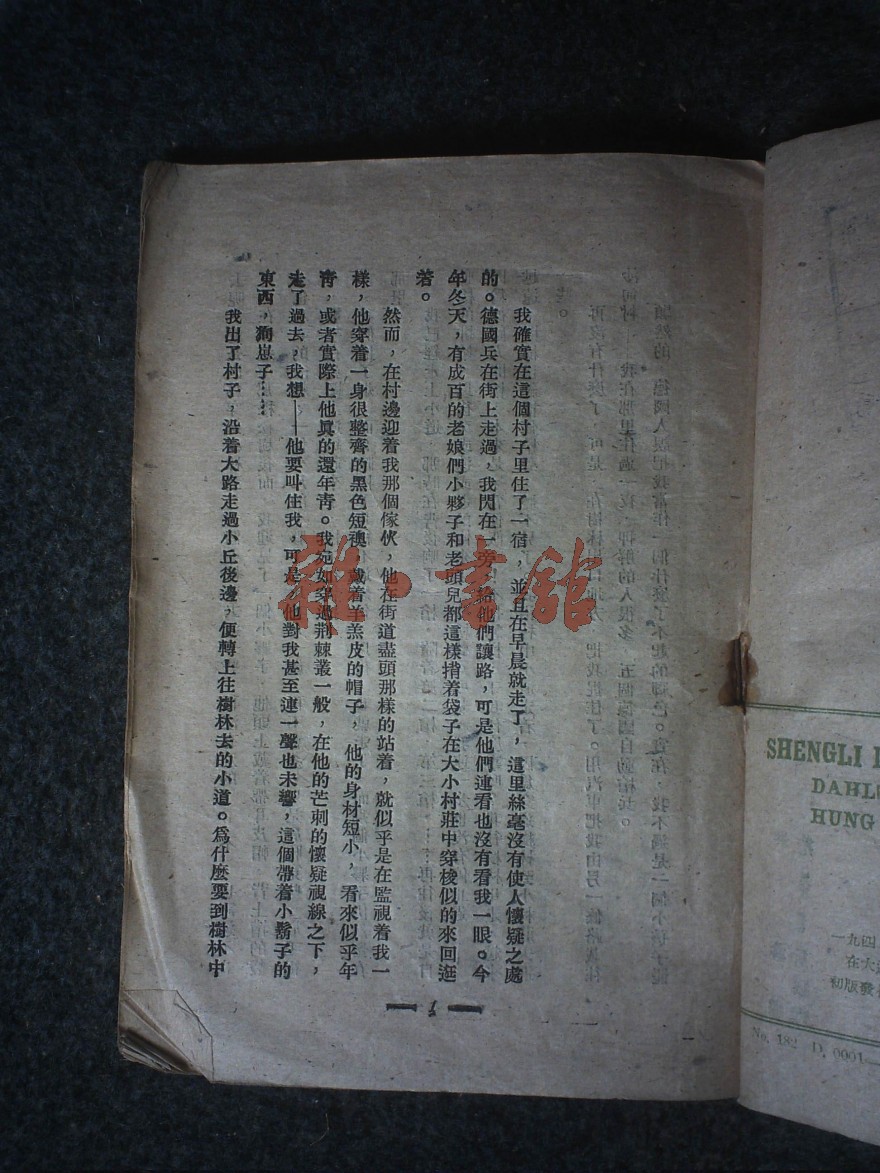 我確實在這個村子里住了一宿，並且在早晨就走了，這里絲毫沒有使人懷疑之處
的。德國兵在街上走過，我閃在一旁，給他們讓路，可是他們連看也沒有看我一眼。今
年冬天，有成百的老娘們小夥子和老頭兒都這樣揹着袋子在大小村莊中穿梭似的來回逛
着。
然而，在村邊迎着我那個傢伙，他在街道盡頭那樣的站着，就似乎是在監視着我一
樣，他穿着一身很整齊的黑色短襖，戴着羊羔皮的帽子，他的身材短小，看來似乎年
靑，或者實際上他眞的還年靑。我宛如穿過荆棘叢一般，在他的芒刺的懷疑視線之下，
走了過去，我想——他要叫住我，可是，他對我甚至連一聲也未響，這個帶着小鬍子的
東西，狗崽子……
我出了村子，沿着大路走過小丘後邊，便轉上往樹林去的小道。爲什麼要到樹林中
雜·書館
SHENGLI
DAHL
HUNG
一九四
在大
初版發
No. 182 D. 0001—